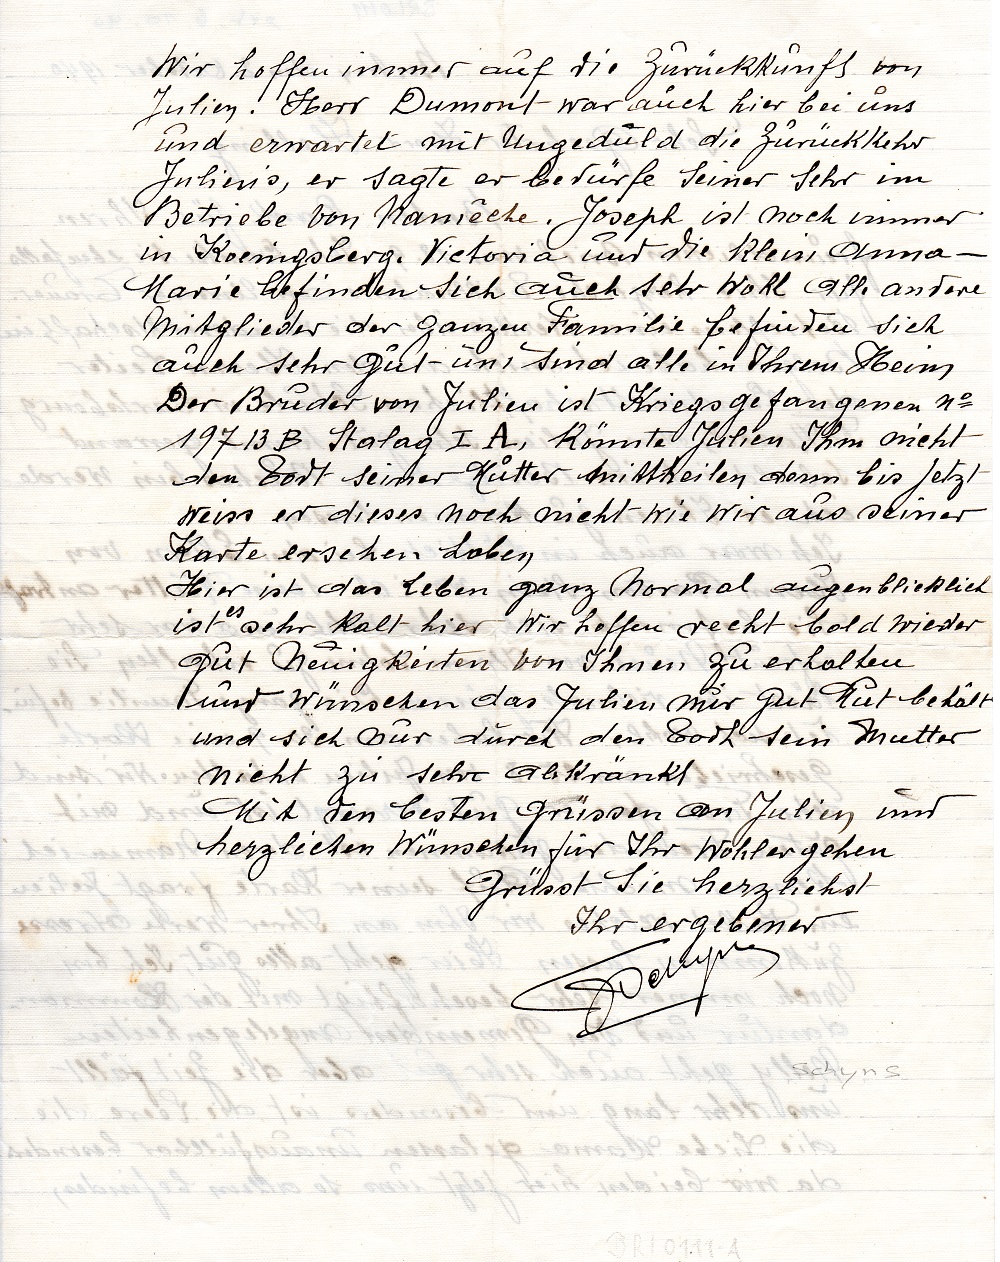 Wir hoffen immer auf die Zurückkunft von
Julien. Herr Dumont war auch hier bei uns
und erwartet mit Ungeduld die Zurückkehr
Julien's, er sagte er bedürfe seiner sehr im
Betriebe von Namêche. Joseph ist noch immer
in Koenigsberg. Victoria und die klein Anna-
Marie befinden sich auch sehr wohl alle andere
Mitglieder der ganzen Familie befinden sich
auch sehr gut und sind alle in Ihrem Heim
Der Bruder von Julien ist Kriegsgefangenen No
19713B Stalag I A, könnte Julien Ihm nicht
den Todt seiner Mutter mittheilen denn bis jetzt
weiss er dieses noch nicht wie wir aus seiner
Karte ersehen haben
Hier ist das Leben ganz Normal augenblicklich
ist es sehr kalt hier Wir hoffen recht bald wieder
gut Neuigkeiten von Ihnen zu erhalten
und wünschen das Julien nur gut Mut behält
und sich nur durch den Todt sein Mutter
nicht zu sehr abkränkt
Mit den besten Grüssen an Julien und
herzlichen Wünschen für Ihr Wohlergehen
Grüsst Sie herzlichst
Ihr ergebener
schyns
BRI0111-A